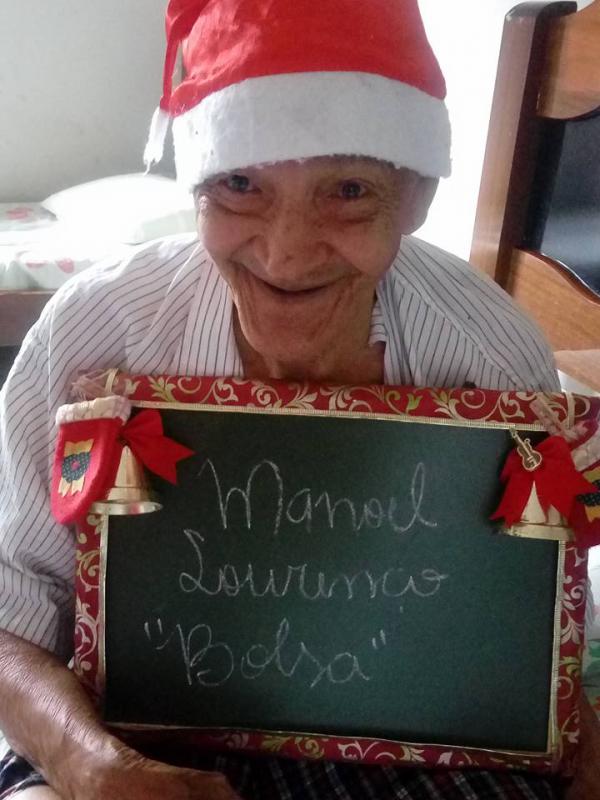 Manoel
Lourenço
"Bolsa"